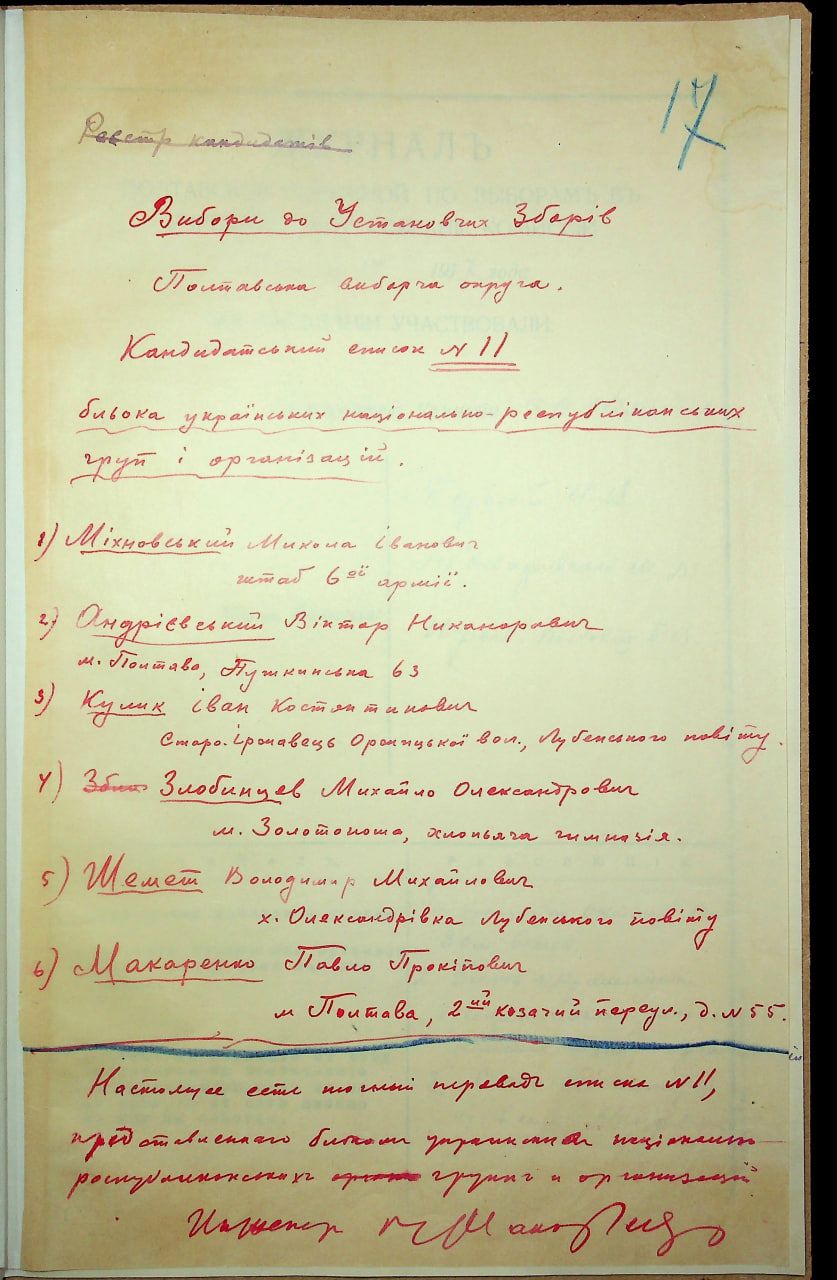 17
Реєстр кандидатів
Вибори до Установчих Зборів
Полтавська виборча округа.
Кандидатський список N 11
бльока українських національно-республіканських
груп і організацій.
1) Міхновський Микола Іванович
штаб 6ої армії.
2) Андрієвський Віктор Никанорович
м. Полтава, Пушкинська 63
3) Кулик Іван Костянтинович
Старо-Іржавець Оржицької вол., Лубенського повіту.
4) Злобинцев Михайло Олександрович
м. Золотоноша, хлопьяча гимназія.
5) Шемет Володимир Михайлович
х. Олександрівка Лубенського повіту
6) Макаренко Павло Прокіпович
м Полтава, 2ий козачий переул., д. N 55.
Настоящее есть точный переводъ списка N 11,
представленнаго блокомъ украинскихъ национально-
республиканскихъ группъ и организаций
Инженер